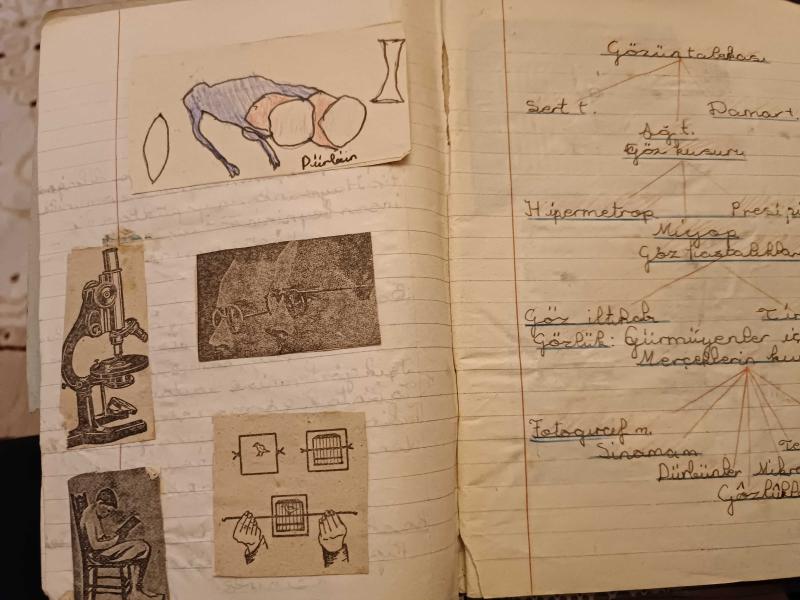 Dürbün
Gözün tabakası
Sert t. Damar t.
Ağ t.
Göz kusuru
Hipermetrop Presi
Miyop
Göz hastalıkları
Göz iltihab
Gözlük: Gürmüyenler iç
Merçeklerin ku
Fotoğıraf m.
Sinamam
Dürbünler Mikro
Gözlükl